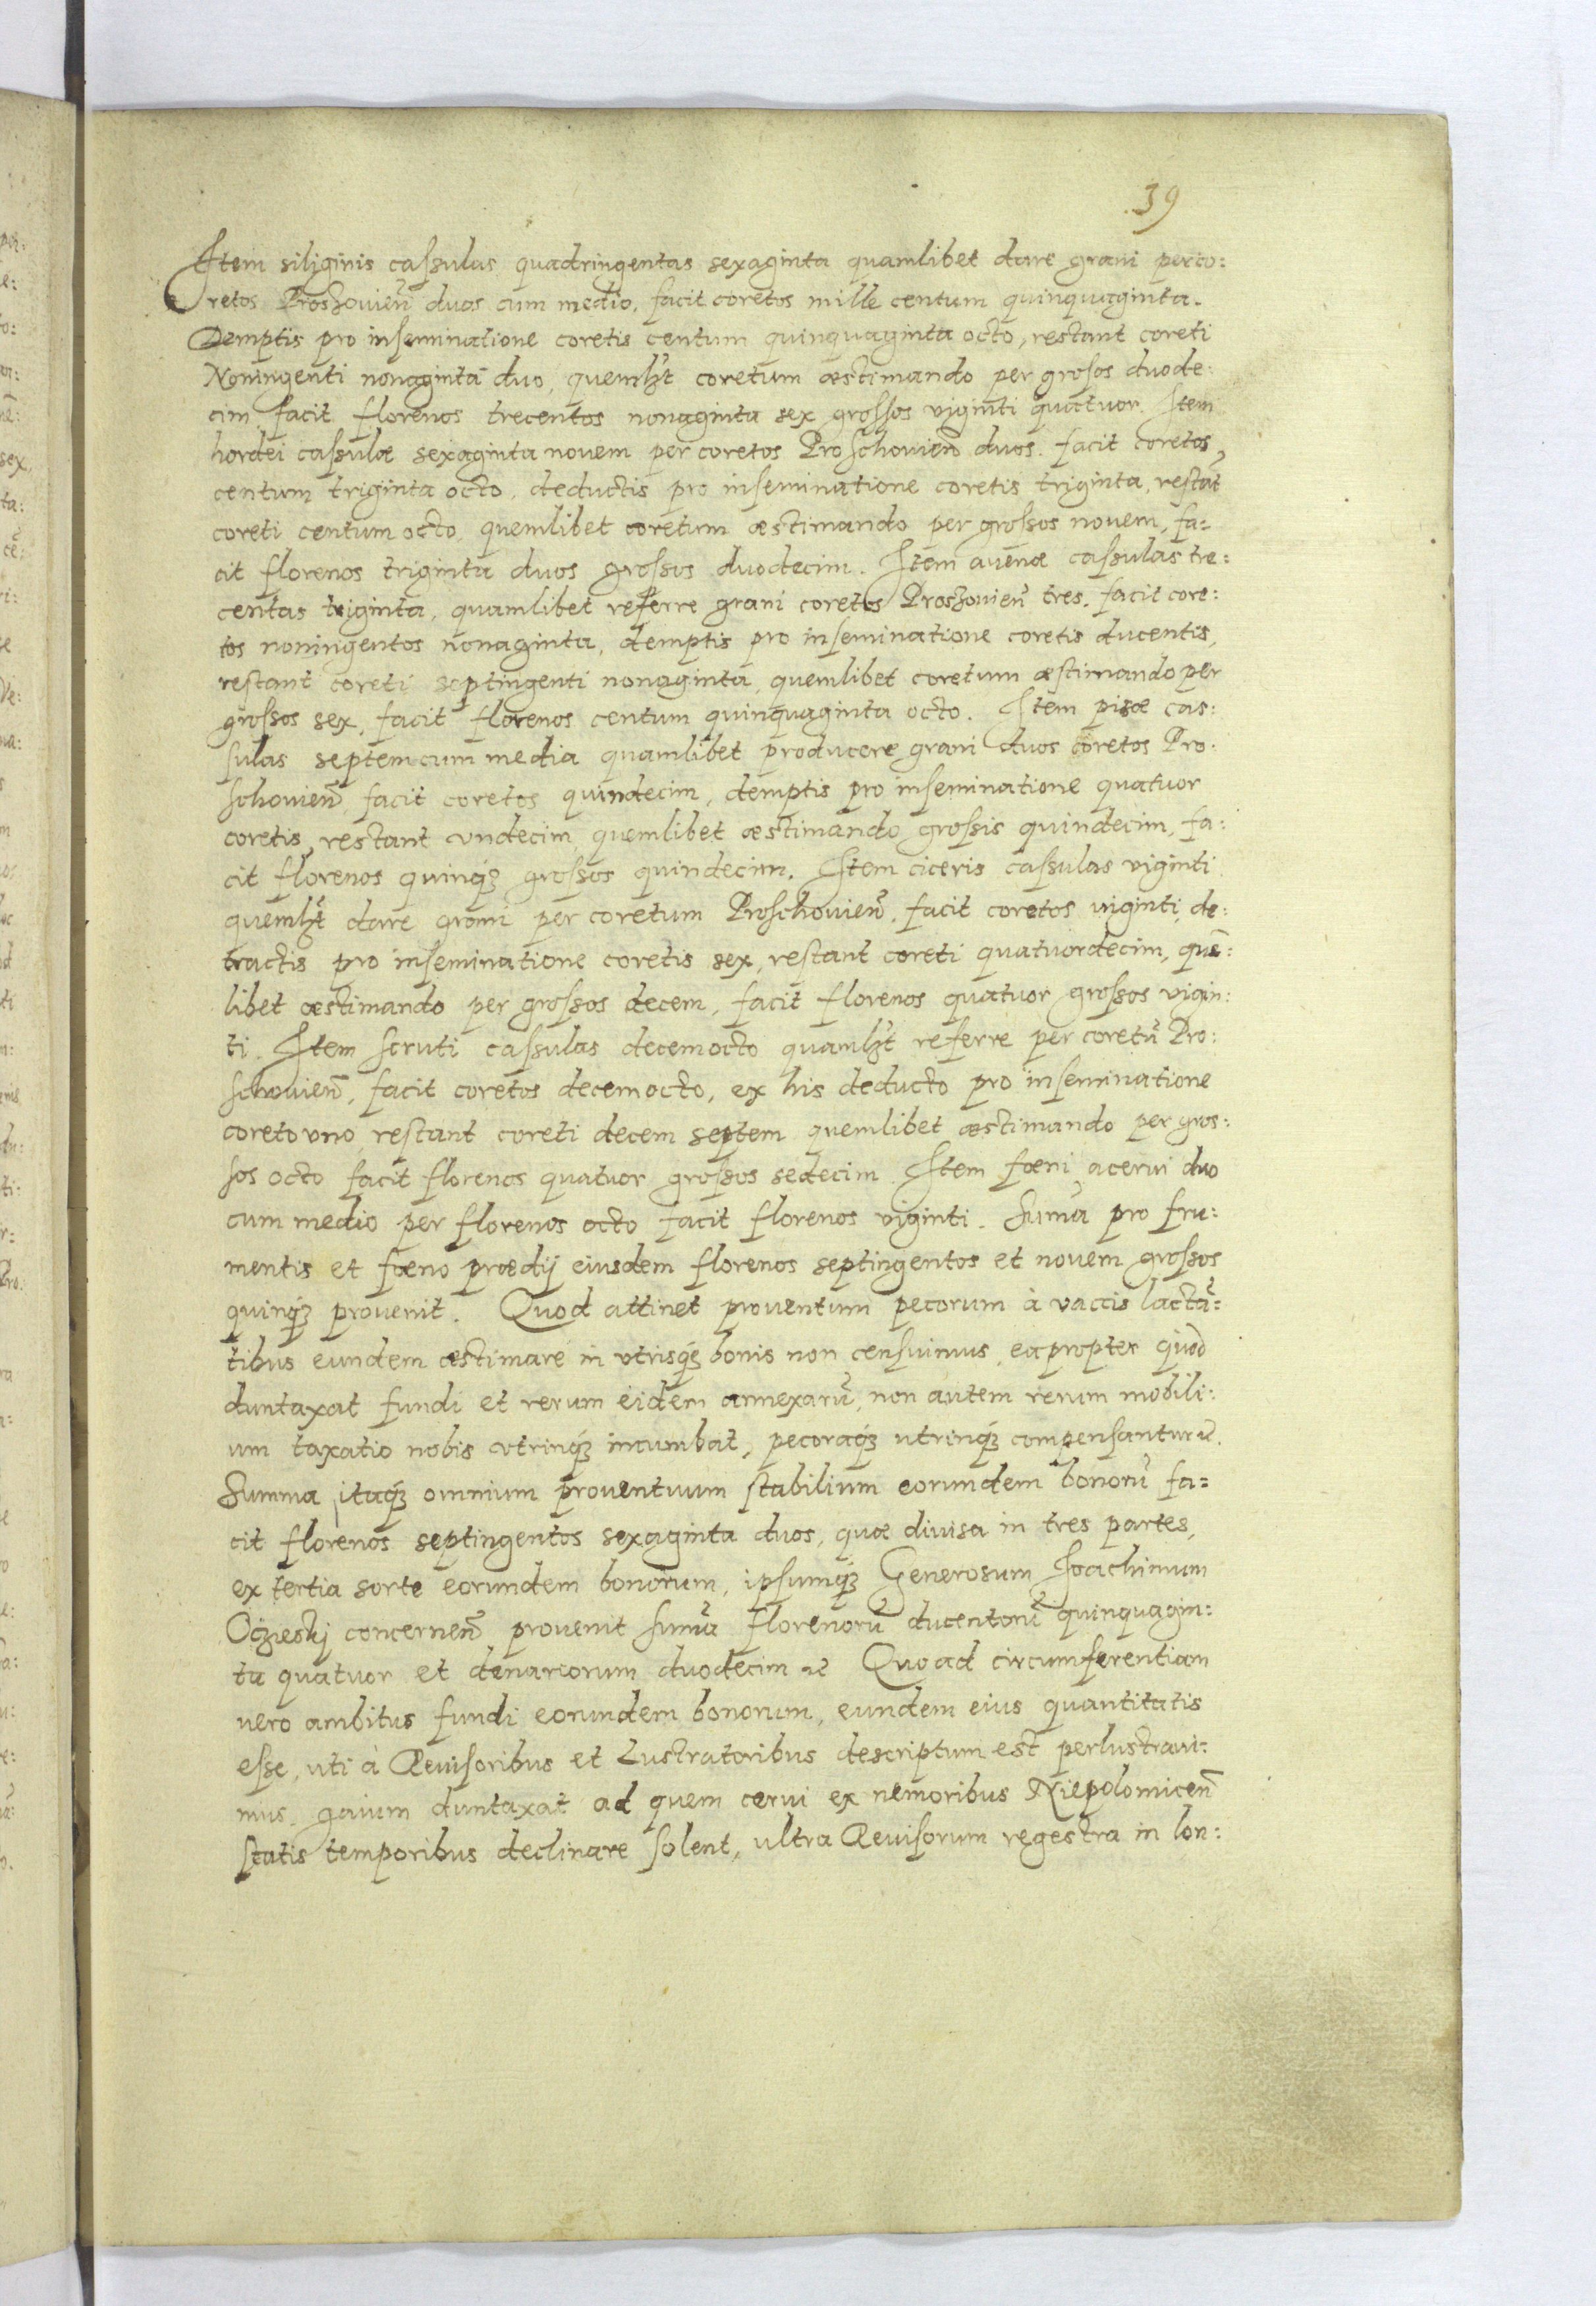 39
Item siliginis caſsulas quadringentas sexaginta quamlibet dare grani per co:
retos Proszouień duos cum medio, facit coretos mille centum quinquaginta.
Demptis pro inſeminatione coretis centum quinquaginta octo, restant coreti
Noningenti nonaginta duo, quemlȝt coretum æstimando per groſos duode:
cim, facit florenos trecentos nonaginta sex groſsos viginti quatuor. Item
hordei caſsulæ sexaginta novem per coretos Proſchouień duos. facit coretos,
centum triginta octo, deductis pro inſeminatione coretis triginta, reſtāt
coreti centum octo, quemlibet coretum æstimando per groſsos novem, fa:
cit florenos triginta duos groſsos duodecim. Item auenæ caſsulas tre:
centas triginta, quamlibet referre grani coretos Proszouień tres. facit core:
tos noningentos nonaginta, demptis pro inſeminatione coretis ducentis,
reſtant coreti septingenti nonaginta, quemlibet coretum æſtimando per
groſsos sex, facit florenos centum quinquaginta octo. Item pisæ cas:
ſulas septem cum media quamlibet producere grani duos coretos Pro:
ſchouień, facit coretos quindecim, demptis pro inſeminatione quatuor
coretis, restant vndecim, quemlibet æstimando groſsis quindecim, fa:
cit florenos quinqȝ groſsos quindecim. Item ciceris caſsulas viginti
quemlȝt dare grani per coretum Proſchouień, facit coretos viginti, de:
tractis pro inſeminatione coretis sex, reſtant coreti quatuordecim, quē:
libet æstimando per groſsos decem, facit florenos quatuor groſsos vigin:
ti. Item scruti caſsulas decemocto quamlȝt referre per coretū Pro:
ſchouień, facit coretos decemocto, ex his deducto pro inſeminatione
coreto vno, reſtant coreti decem septem quemlibet æstimando per gros:
ſos octo facit florenos quatuor groſsos sedecim. Item fœni acerui duo
cum medio per florenos octo facit florenos viginti. Sum̄a pro fru:
mentis et fœno prædij eiusdem florenos septingentos et novem groſsos
quinqȝ provenit. Quod attinet proventum pecorum à vaccis lactā:
tibus eundem æstimare in vtrisqȝ bonis non cenſuimus, eapropter quod
duntaxat fundi et rerum eidem annexarū, non autem rerum mobili:
um taxatio nobis vtrinqȝ incumbat, pecoraqȝ utrinqȝ compenſantur.
Summa itaqȝ omnium proventuum ſtabilium eorundem bonorū fa:
cit florenos septingentos sexaginta duos, quæ diuisa in tres partes,
ex tertia sorte eorundem bonorum, ipſumqȝ Generosum Joachimum
Ocieskj concernen̄ provenit sum̄a florenorū ducentorū quinquagin:
ta quatuor et denariorum duodecim Quo ad circumferentiam
uero ambitus fundi eorundem bonorum, eundem eius quantitatis
eſse, uti à Reuiſoribus et Luſtratoribus descriptum est perlustraui:
mus. gaium duntaxat ad quem cerui ex nemoribus Niepolomiceń
ſtatis temporibus declinare ſolent, ultra Reuiſorum regestra in lon: